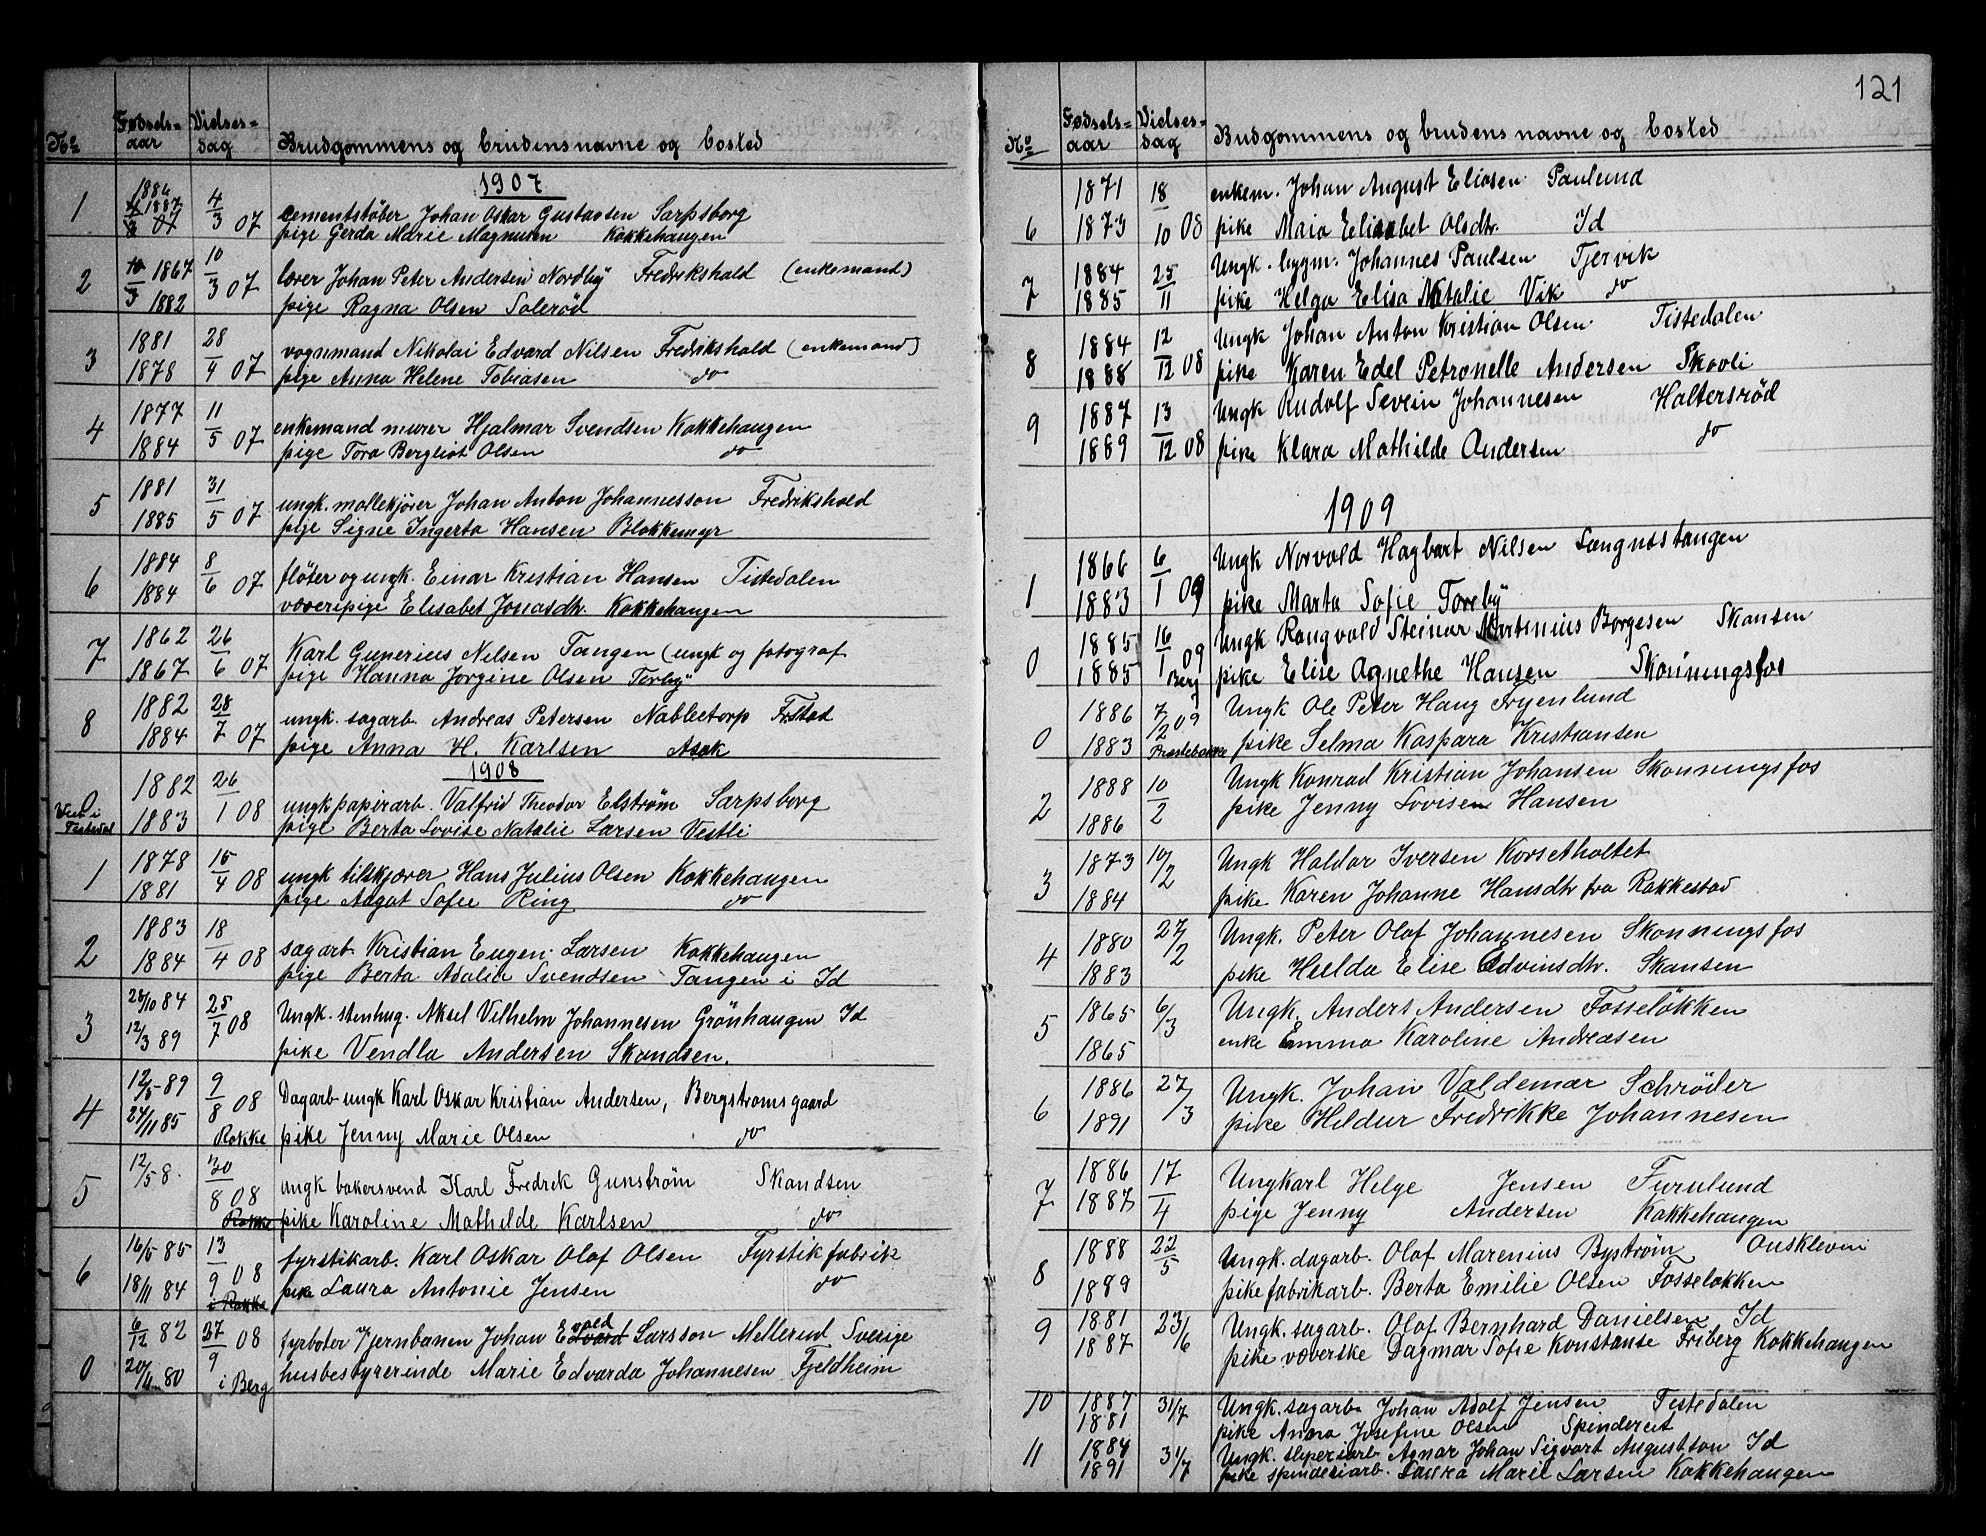 No Fødsels=aar Vielses=dag Brudgommens og brudens navne og bosted
1907
1 1886 4/3 07 cementstøber Johan Oskar Gustavsen Sarpsborg
1887 pige Gerda Marie Magnusen Kokkehaugen
2 1867 10/3 07 lærer Johan Peter Andersen Nordby Fredrikshald (enkemand)
1882 pige Ragna Olsen Solerød
3 1881 28/4 07 vognmand Nikolai Edvard Nilsen Fredrikshald (enkemand)
1878 pige Anna Helene Tobiasen do
4 1877 11/5 07 enkemand murer Hjalmar Svendsen Kokkehaugen
1884 pige Tora Bergliot Olsen do
5 1881 31/5 07 ungk. møllekjører Johan Anton Johannesson Fredrikshald
1885 pige Signe Ingerta Hansen Blokkemyr
6 1884 8/6 07 fløter og ungk. Einar Kristian Hansen Tistedalen
1884 væveripige Elisabet Jonasdtr. Kokkehaugen
7 1862 26/6 07 Karl Gunerius Nilsen Tangen (ungk og fotograf
1867 pige Hanna Jørgine Olsen Torby
8 1882 28/7 07 ungk. sagarb. Andreas Petersen Nabbetorp Fr.stad
1884 pige Anna H. Karlsen Asak
1908
0 1882 26/1 08 ungk papirarb. Valfrid Theodor Elstrøm Sarpsborg
Viet i Tistedal 1883 pige Berta Lovise Natalie Larsen Vestli
1 1878 15/4 08 ungk tilskjærer Hans Julius Olsen Kokkehaugen
1881 pige Aagot Sofie Ring do
2 1883 18/4 08 sagarb. Kristian Eugen Larsen Kokkehaugen
1884 pige Berta Adalia Svendsen Tangen i Id
3 25/10 84 25/7 08 Ungk. stenhug. Aksel Vilhelm Johannesen Grønhaugen Id
12/3 89 pike Vendla Andersen Skandsen.
4 12/5 89 9/8 08 Dagarb ungk Karl Oskar Kristian Andersen, Bergstrømsgaard
27/11 85 Rokke pike Jenny Marie Olsen do
5 12/5 8. 30/8 08 ungk bakersvend Karl Fredrek Gunstrøm Skandsen
Rokke pike Karoline Mathilde Karlsen do
6 16/5 85 13/9 08 fyrstikarb. Karl Oskar Olaf Olsen Fyrstikfabrik
18/11 84 i Rokke pike Laura Antonie Jensen do
0 6/12 82 27/9 08 fyrbøter v/jernbanen Johan Edvard vald Larsson Mellerud Sverige
20/4 80 i Berg husbestyrerinde Marie Edvarda Johannesen Fjeldheim
121
No Fødsels=aar Vielses=dag Budgommens og brudens navne og bosted
6 1871 18/10 08 enkem. Johan August Eliasen Paulund
1873 pike Maia Elisabet Olsdtr. Id
7 1884 25/11 Ungk. bygm. Johannes Paulsen Tjervik
1885 pike Helga Elisa Natalie Vik do
8 1884 12/12 08 Ungk Johan Anton Kristian Olsen Tistedalen
1888 pike Karen Edel Petronelle Andersen Skovli
9 1887 13/12 08 Ungk Rudolf Severin Johannesen Haltersrød
1889 pike Klara Mathilde Andersen do
1909
1 1866 6/1 09 Ungk Norvald Hagbart Nilsen Langnæstangen
1883 pike Marta Sofie Toreby
0 1885 16/1 09 Ungk Rangvald Steinar Martinius Borgesen Skansen
1885 Berg pike Elise Agnethe Hansen Skonningsfos
0 1886 7/2 09 Ungk Ole Peter Haug Fryenlund
1883 Prestebakke pike Selma Kaspara Kristiansen
2 1888 10/2 Ungk Konrad Kristian Johansen Skonningsfos
1886 pike Jenny Lovisen Hansen
3 1873 10/2 Ungk Haldor Iversen Korsetholtet
1884 pike Karen Johanne Hansdtr fra Rakkestad
4 1880 27/2 Ungk. Peter Olaf Johannesen Skonningsfos
1883 pike Hulda Elise Edvinsdtr. Skansen
5 1865 6/3 Ungk. Anders Andersen Fosseløkken
1865 enke Emma Karoline Andreasen
6 1886 27/3 Ungk. Johan Valdemar Schrøder
1891 pike Heldur Fredrikke Johannesen
7 1886 17/4 Ungkarl Helge Jensen Furulund
1887 pige Jenny Andersen Kokkehaugen
8 1888 22/5 Ungk. dagarb. Olaf Marenius Bystrøm Ouskleven
1889 pike fabrikarb. Berta Emilie Olsen Fosseløkken
9 1881 23/6 Ungk. sagarb. Olaf Bernhard Danielsen Id
1887 pike væverske Dagmar Sofie Konstanse Friberg Kokkehaugen
10 1887 31/7 Ungk. sagarb. Johan Adolf Jensen Tistedalen
1881 pike Anna Josefine Olsen Spinderiet
11 1884 31/7 Ungk. sliperiarb Agnar Johan Sigvart Augustson Id
1891 pike spinderiarb. Laura Marie Larsen Kokkehaugen